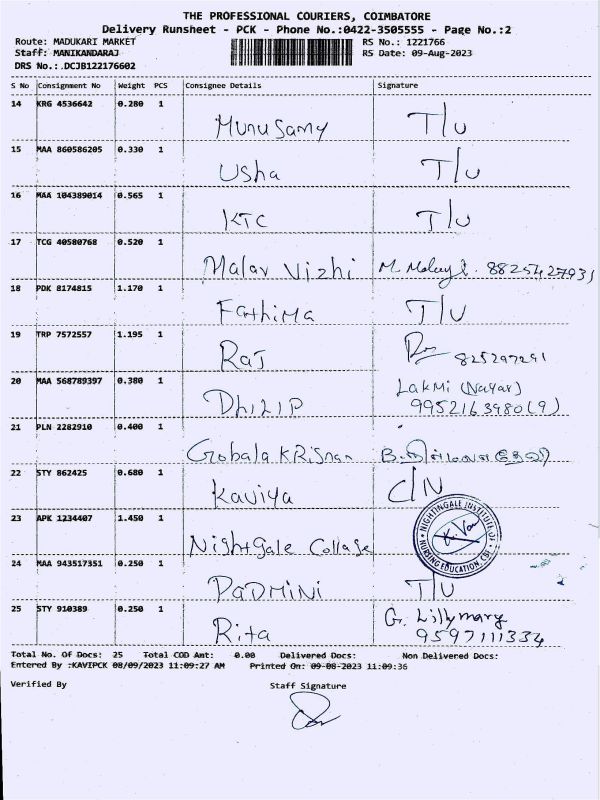 THE PROFESSIONAL COURIERS, COIMBATORE
Delivery Runsheet - PCK - Phone No.:0422-3505555 - Page No.:2
Route: MADUKARI MARKET RS No.: 1221766
Staff: MANIKANDARAJ RS Date: 09-Aug-2023
DRS No.:.DCJB122176602
S No Consignment No Weight PCS Consignee Details Signature
14 KRG 4536642 0.280 1 Munusamy T/U
15 MAA 860586205 0.330 1 Usha T/U
16 MAA 104389014 0.565 1 KTC T/U
17 TCG 40580768 0.520 1 Malar Vizhi M. 8825427931
18 PDK 8174815 1.170 1 Fathima T/U
19 TRP 7572557 1.195 1 Raj 825297291
20 MAA 568789397 0.380 1 DHILIP Lakmi (Nayar)
9952163980(9)
21 PLN 2282910 0.400 1 GobalaKRisnan
22 STY 862425 0.680 1 Kaviya C/N
23 APK 1234407 1.450 1 Nightgale Collage NIGHTINGALE INSTITUTE OF NURSING EDUCATION, CBE
24 MAA 943517351 0.250 1 PADMINI T/U
25 STY 910389 0.250 1 Rita G. Lillymary
9597111334
Total No. Of Docs: 25 Total COD Amt: 0.00 Delivered Docs: Non Delivered Docs:
Entered By :KAVIPCK 08/09/2023 11:09:27 AM Printed On: 09-08-2023 11:09:36
Verified By Staff Signature